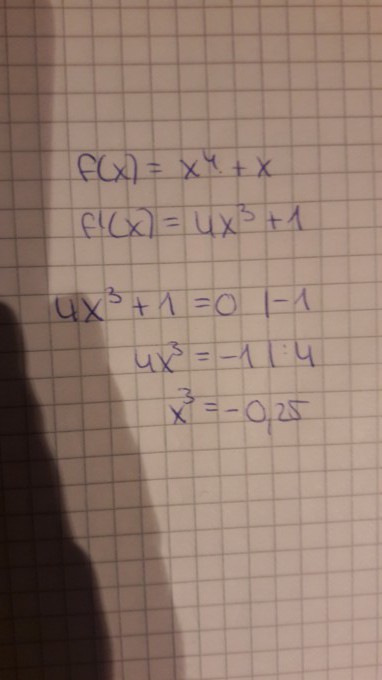 f(x) = x⁴ + x
f'(x) = 4x³ + 1
4x³ + 1 = 0 |-1
4x³ = -1 |:4
x³ = -0,25